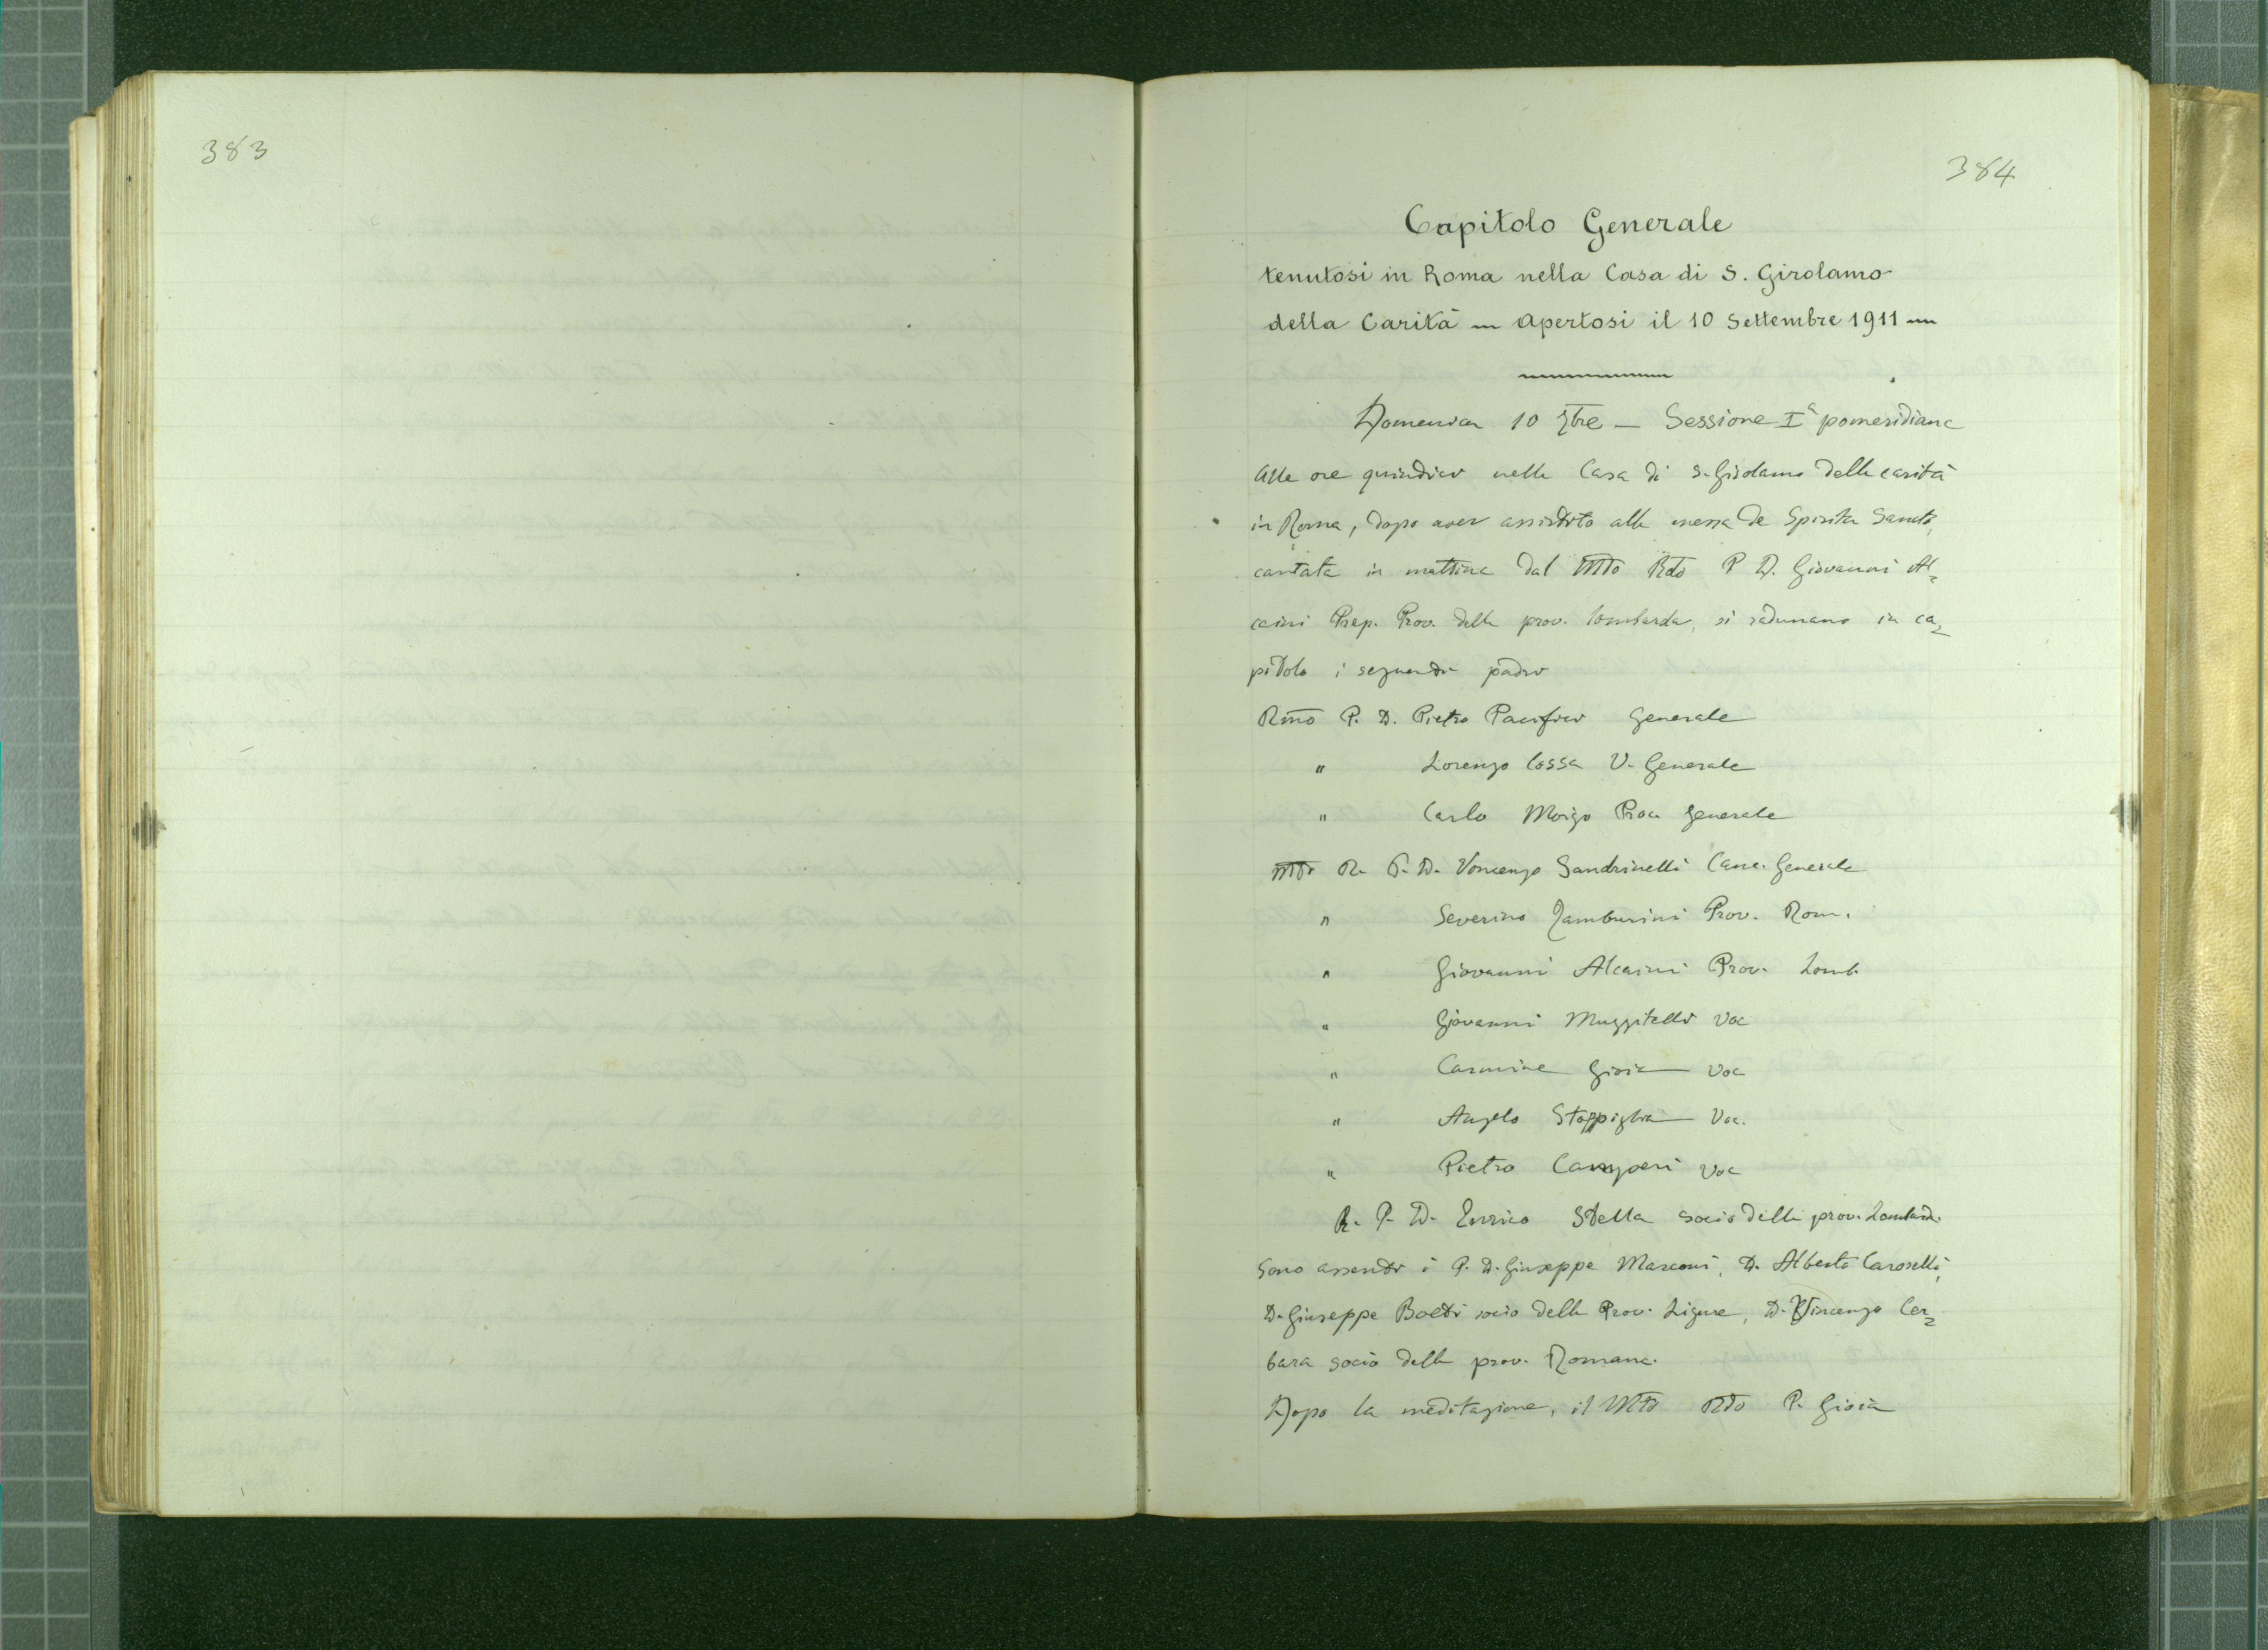 383
384
Capitolo Generale
tenutosi in Roma nella Casa di S. Girolamo
della Carità — Apertosi il 10 Settembre 1911 —
Domenica 10 7bre — Sessione Iª pomeridiana
Alle ore quindici nella Casa di S. Girolamo della carità
in Roma, dopo aver assistito alla messa de Spiritu Sancto,
cantata in mattina dal Mto Rdo P. D. Giovanni Al=
caini Prep. Prov. della prov. lombarda, si radunano in ca=
pitolo i seguenti padri
Rmo P. D. Pietro Pacifici Generale
" Lorenzo Cossa V. Generale
" Carlo Moizo Proc Generale
Mto R. P. D. Vincenzo Sandrinelli Canc. Generale
" Severino Tamburini Prov. Rom.
" Giovanni Alcaini Prov. Lomb.
" Giovanni Muzzitelli Voc
" Carmine Gioia Voc
" Angelo Stoppiglia Voc.
" Pietro Camperi Voc
R. P. D. Enrico Stella socio della prov. Lombard.
Sono assenti i P. D. Giuseppe Marconi, D. Alberto Caroselli,
D. Giuseppe Boeti socio della Prov. Ligure, D. Vincenzo Cer=
bara socio della prov. Romana.
Dopo la meditazione, il Mto Rdo P. Gioia